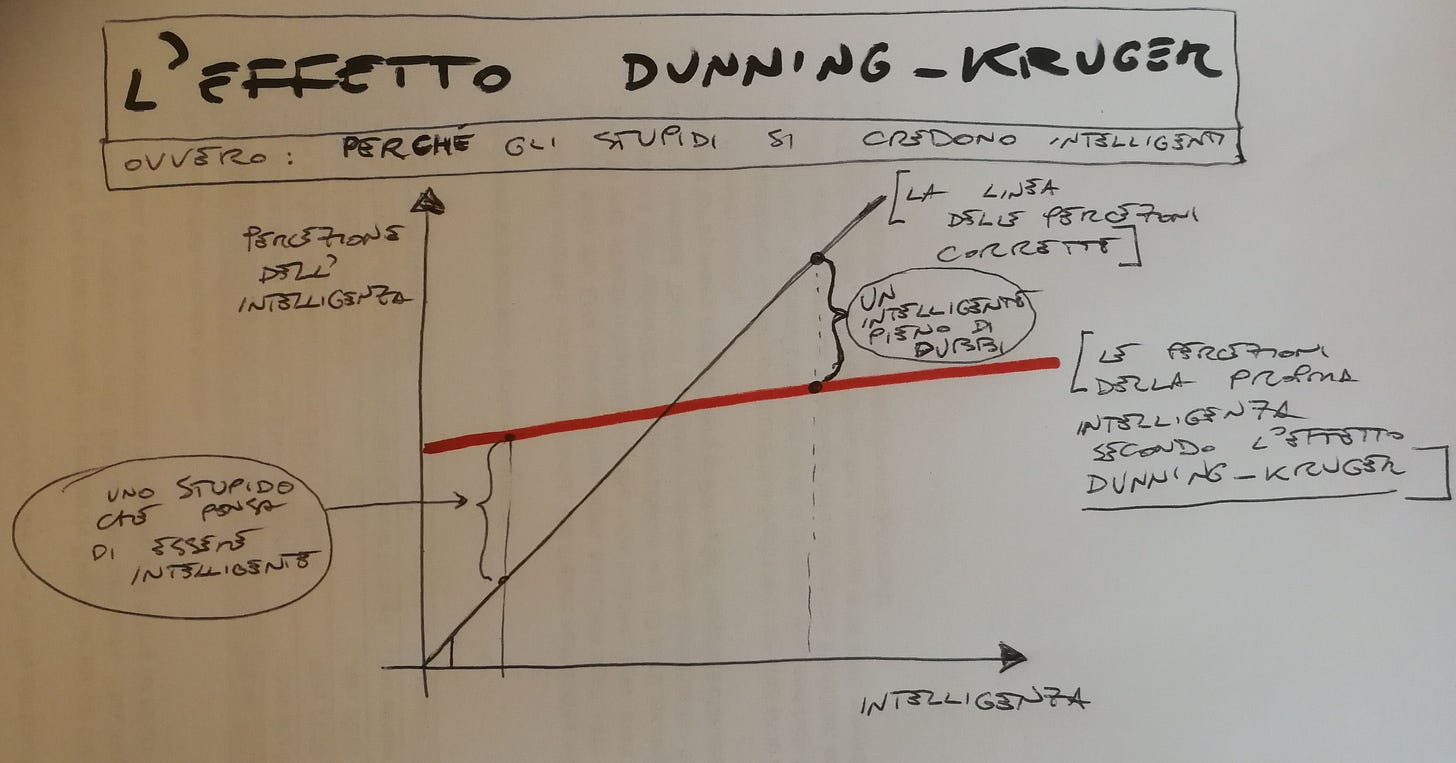 L'EFFETTO DUNNING-KRUGER
OVVERO: PERCHÉ GLI STUPIDI SI CREDONO INTELLIGENTI
PERCEZIONE
DELL'
INTELLIGENZA
[LA LINEA
DELLE PERCEZIONI
CORRETTE]
UN
INTELLIGENTE
PIENO DI
DUBBI
[LE PERCEZIONI
DELLA PROPRIA
INTELLIGENZA
SECONDO L'EFFETTO
DUNNING-KRUGER]
UNO STUPIDO
CHE PENSA
DI ESSERE
INTELLIGENTE
INTELLIGENZA